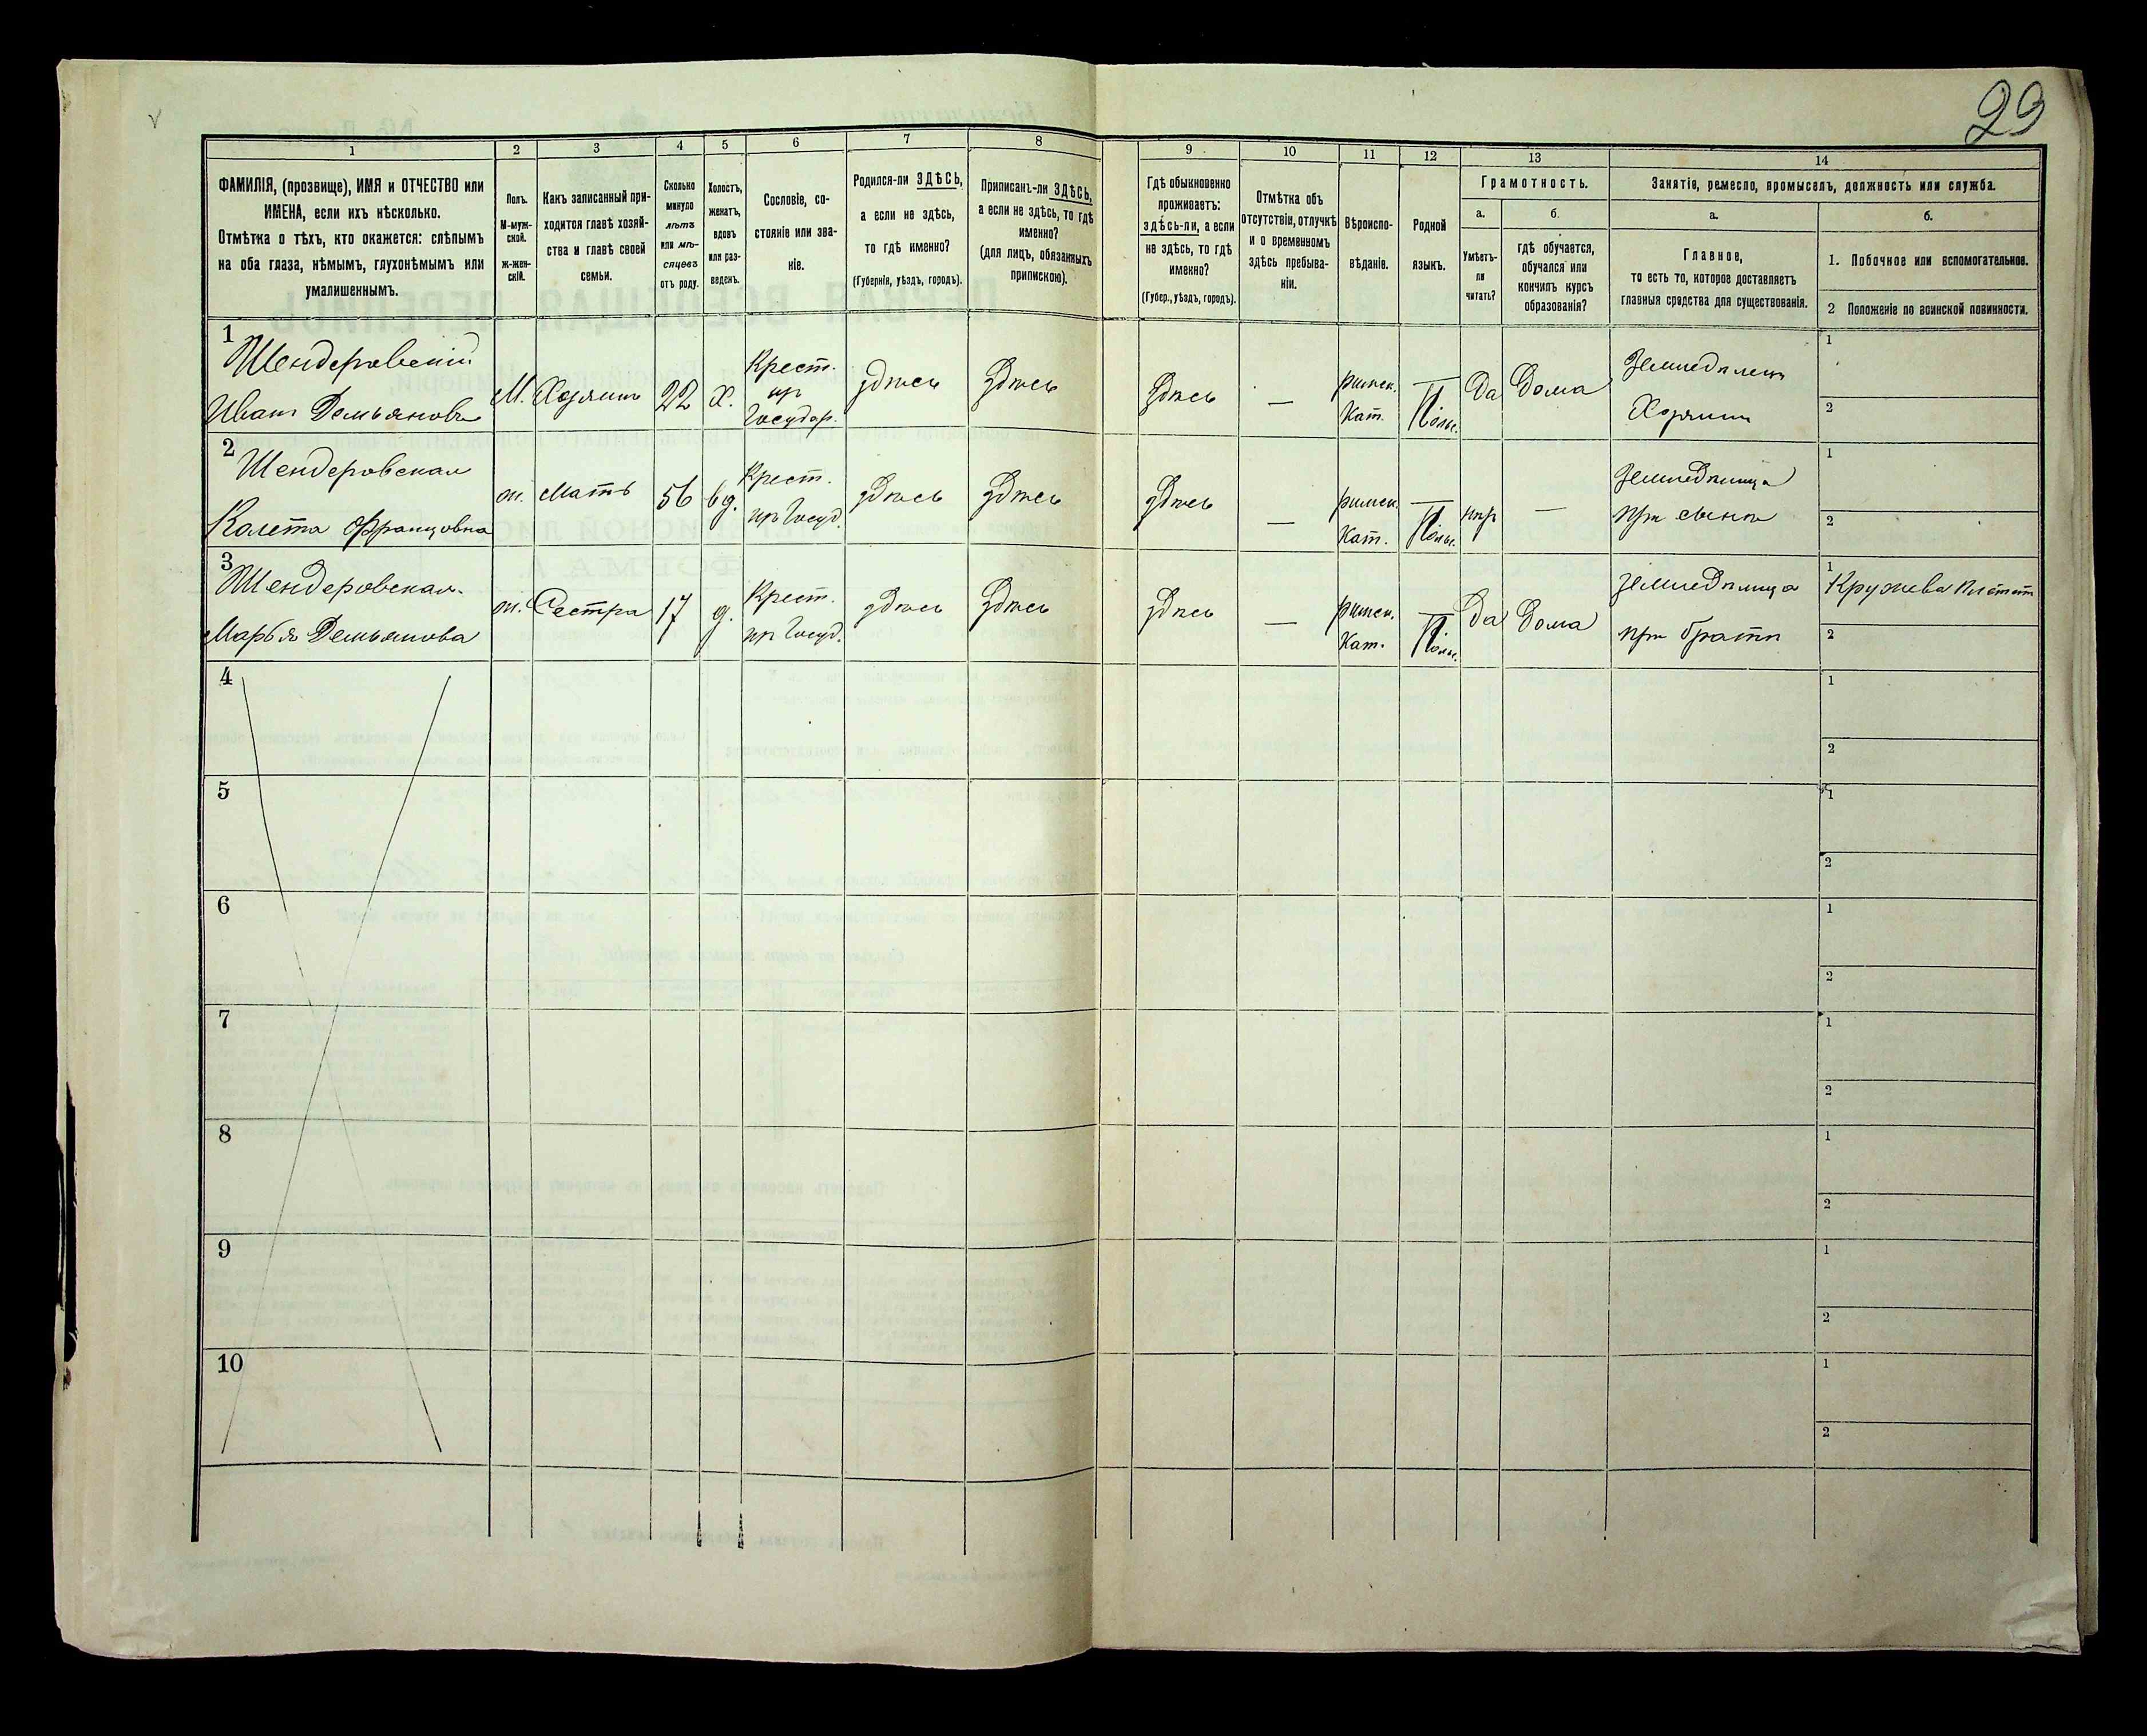 29
1 2 3 4 5 6 7 8 9 10 11 12 13 14
ФАМИЛІЯ, (прозвище), ИМЯ и ОТЧЕСТВО или
ИМЕНА, если ихъ нѣсколько.
Отмѣтка о тѣхъ, кто окажется: слѣпымъ
на оба глаза, нѣмымъ, глухонѣмымъ или
умалишеннымъ.
Полъ.
М-муж-
ской.
Ж-жен-
скій.
Какъ записанный при-
ходится главѣ хозяй-
ства и главѣ своей
семьи.
Сколько
минуло
лѣтъ
или мѣ-
сяцевъ
отъ роду.
Холостъ,
женатъ,
вдовъ
или раз-
веденъ.
Сословіе, со-
стояніе или зва-
ніе.
Родился-ли ЗДѢСЬ,
а если не здѣсь,
то гдѣ именно?
(Губернія, уѣздъ, городъ).
Приписанъ-ли ЗДѢСЬ,
а если не здѣсь, то гдѣ
именно?
(для лицъ, обязанныхъ
припискою).
Гдѣ обыкновенно
проживаетъ:
здѣсь-ли, а если
не здѣсь, то гдѣ
именно?
(Губер., уѣздъ, городъ).
Отмѣтка объ
отсутствіи, отлучкѣ
и о временномъ
здѣсь пребыва-
ніи.
Вѣроиспо-
вѣданіе.
Родной
языкъ.
Грамотность.
а.
Умѣетъ-
ли
читать?
б.
гдѣ обучается,
обучался или
кончилъ курсъ
образованія?
Занятіе, ремесло, промыселъ, должность или служба.
а.
Главное,
то есть то, которое доставляетъ
главныя средства для существованія.
б.
1. Побочное или вспомогательное.
2 Положеніе по воинской повинности.
1 Шендеровскій
Иванъ Демьяновъ
М. Хозяинъ 22 Х. Крест.
из
Государ.
здѣсь здѣсь здѣсь — римск.
Кат.
Польс.
Да Дома Земледѣлецъ
Хозяинъ
1
2
2 Шендеровская
Калета Францовна
ж. Мать 56 вд. Крест.
из Госуд.
здѣсь здѣсь здѣсь — римск.
Кат.
Польс.
нѣт — земледѣлица
при сынѣ
1
2
3 Шендеровская
Марья Демьянова
ж. Сестра 17 д. Крест.
из Госуд.
здѣсь здѣсь здѣсь — римск.
Кат.
Польс.
Да Дома земледѣлица
при братѣ
1 Кружева плетет
2
4
1
2
5
1
2
6
1
2
7
1
2
8
1
2
9
1
2
10
1
2